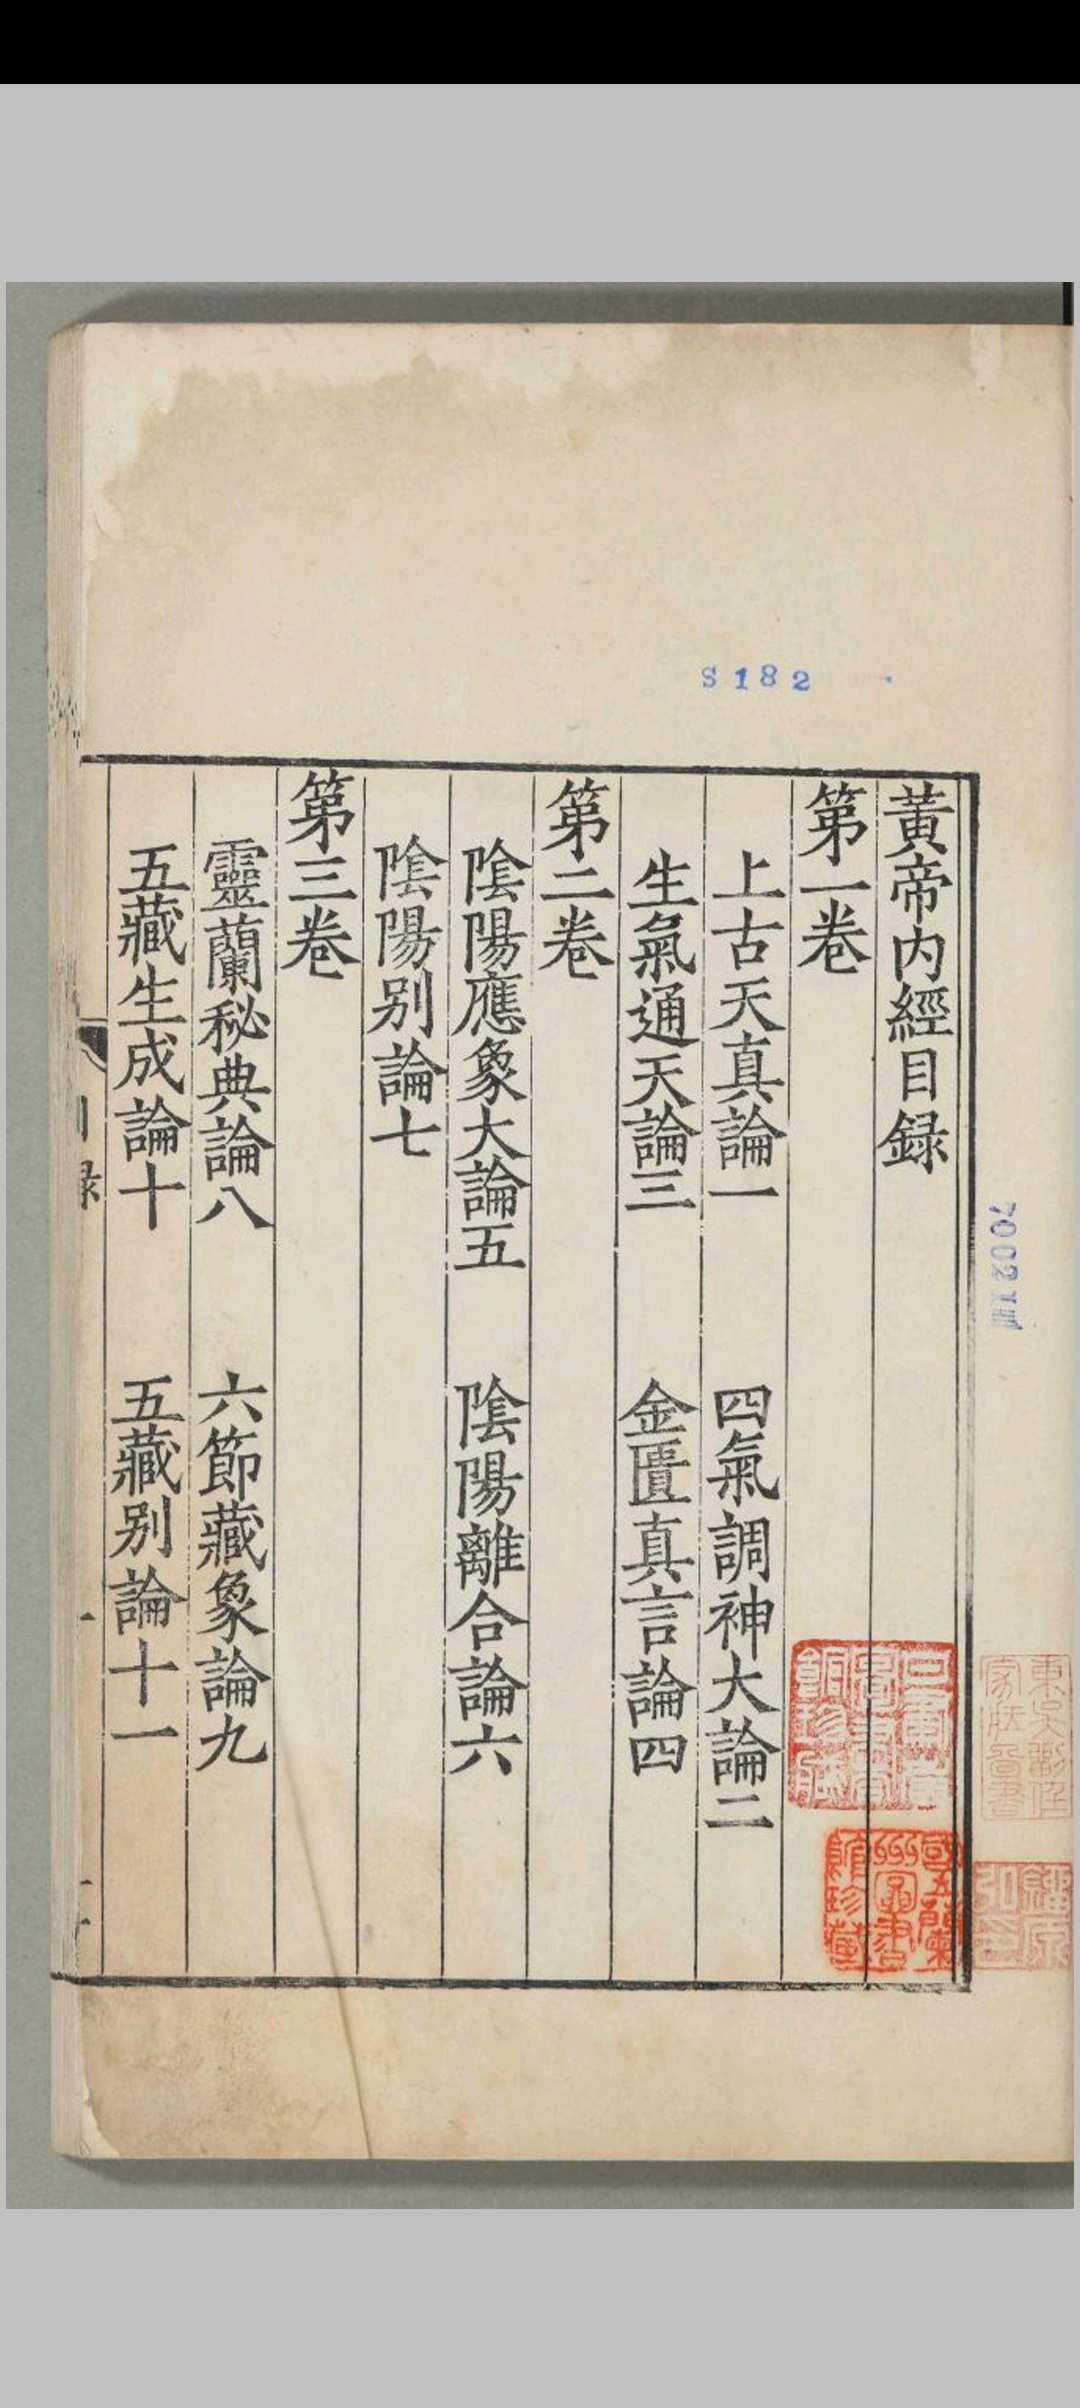 S182
黃帝内經目録
第一卷
上古天真論一 四氣調神大論二
生氣通天論三 金匱真言論四
第二卷
陰陽應象大論五 陰陽離合論六
陰陽别論七
第三卷
靈蘭秘典論八 六節藏象論九
五藏生成論十 五藏别論十一